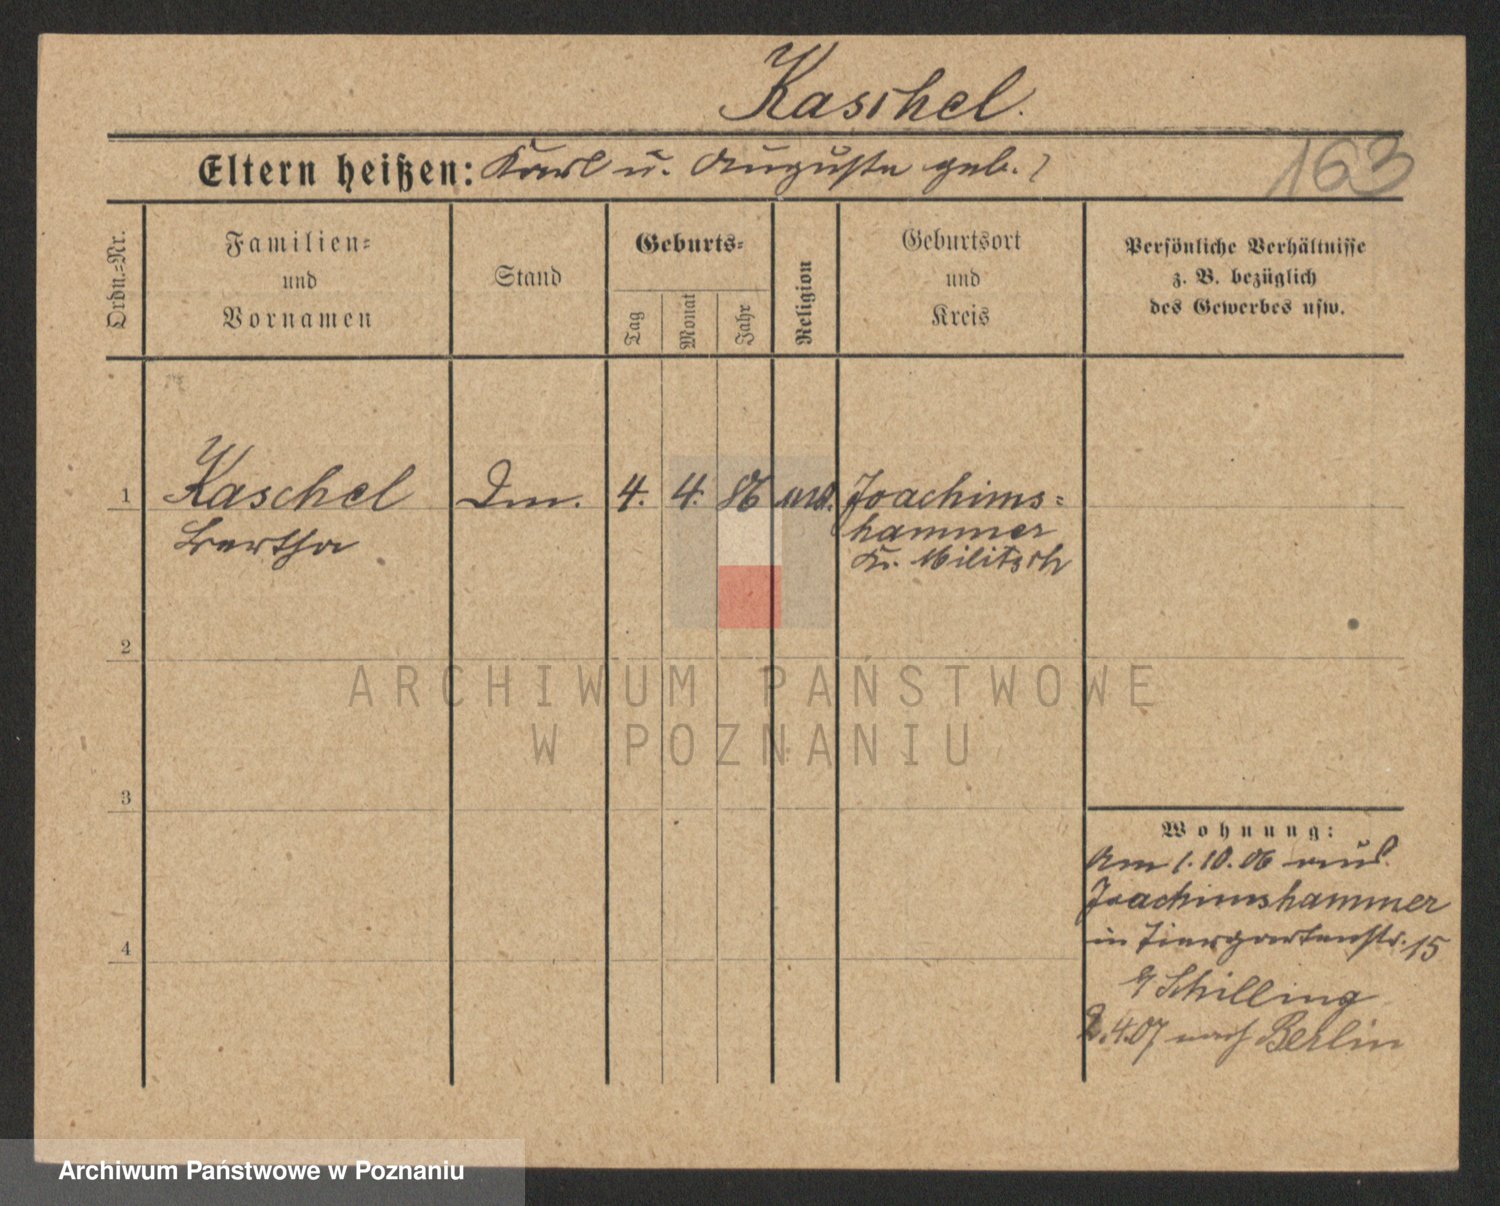 Kaschel.
Eltern heißen: Karl u. Auguste geb. ?
163
Ordn.-Nr.
Familien-
und
Vornamen
Stand
Geburts-
Tag
Monat
Jahr
Religion
Geburtsort
und
Kreis
Persönliche Verhältnisse
z. B. bezüglich
des Gewerbes usw.
1
Kaschel
Bertha
4.
4.
86
Joachims-
hammer
Kr. Militsch
2
3
4
Wohnung:
Am 1.10.06 aus
Joachimshammer
in Tiergartenstr. 15
Schilling
2.4.07 nach Berlin
ARCHIWUM PAŃSTWOWE
W POZNANIU
Archiwum Państwowe w Poznaniu